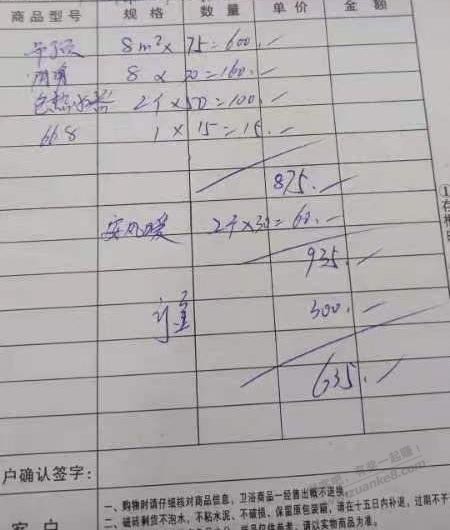 商品型号 规格 数量 单价 金额
8m²× 75=600.—
8 × 20=160.—
2个×50=100.—
668 1 × 15=15.—
875.—
安风暖 2个×30=60.—
935.—
订金 300.—
635.—
户确认签字:
一、购物时请仔细核对商品信息,卫浴商品一经售出概不退换
二、磁砖剩货不泡水、不粘水泥、不破损、保留原包装箱,请在十五日内补退,过期不予
客 户
请以实物商品为准。